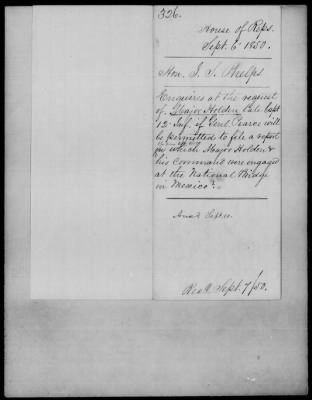 326.
House of Reps.
Sept. 6th 1850.
Hon. J. S. Phelps
Enquires at the request
of Major Holden late Capt
12 Inf. if Genl. Pearce will
be permitted to file a report
in which Major Holden &
his command were engaged
at the National Bridge
in Mexico?
Ansd Sept.
Recd. Sept. 7/50.